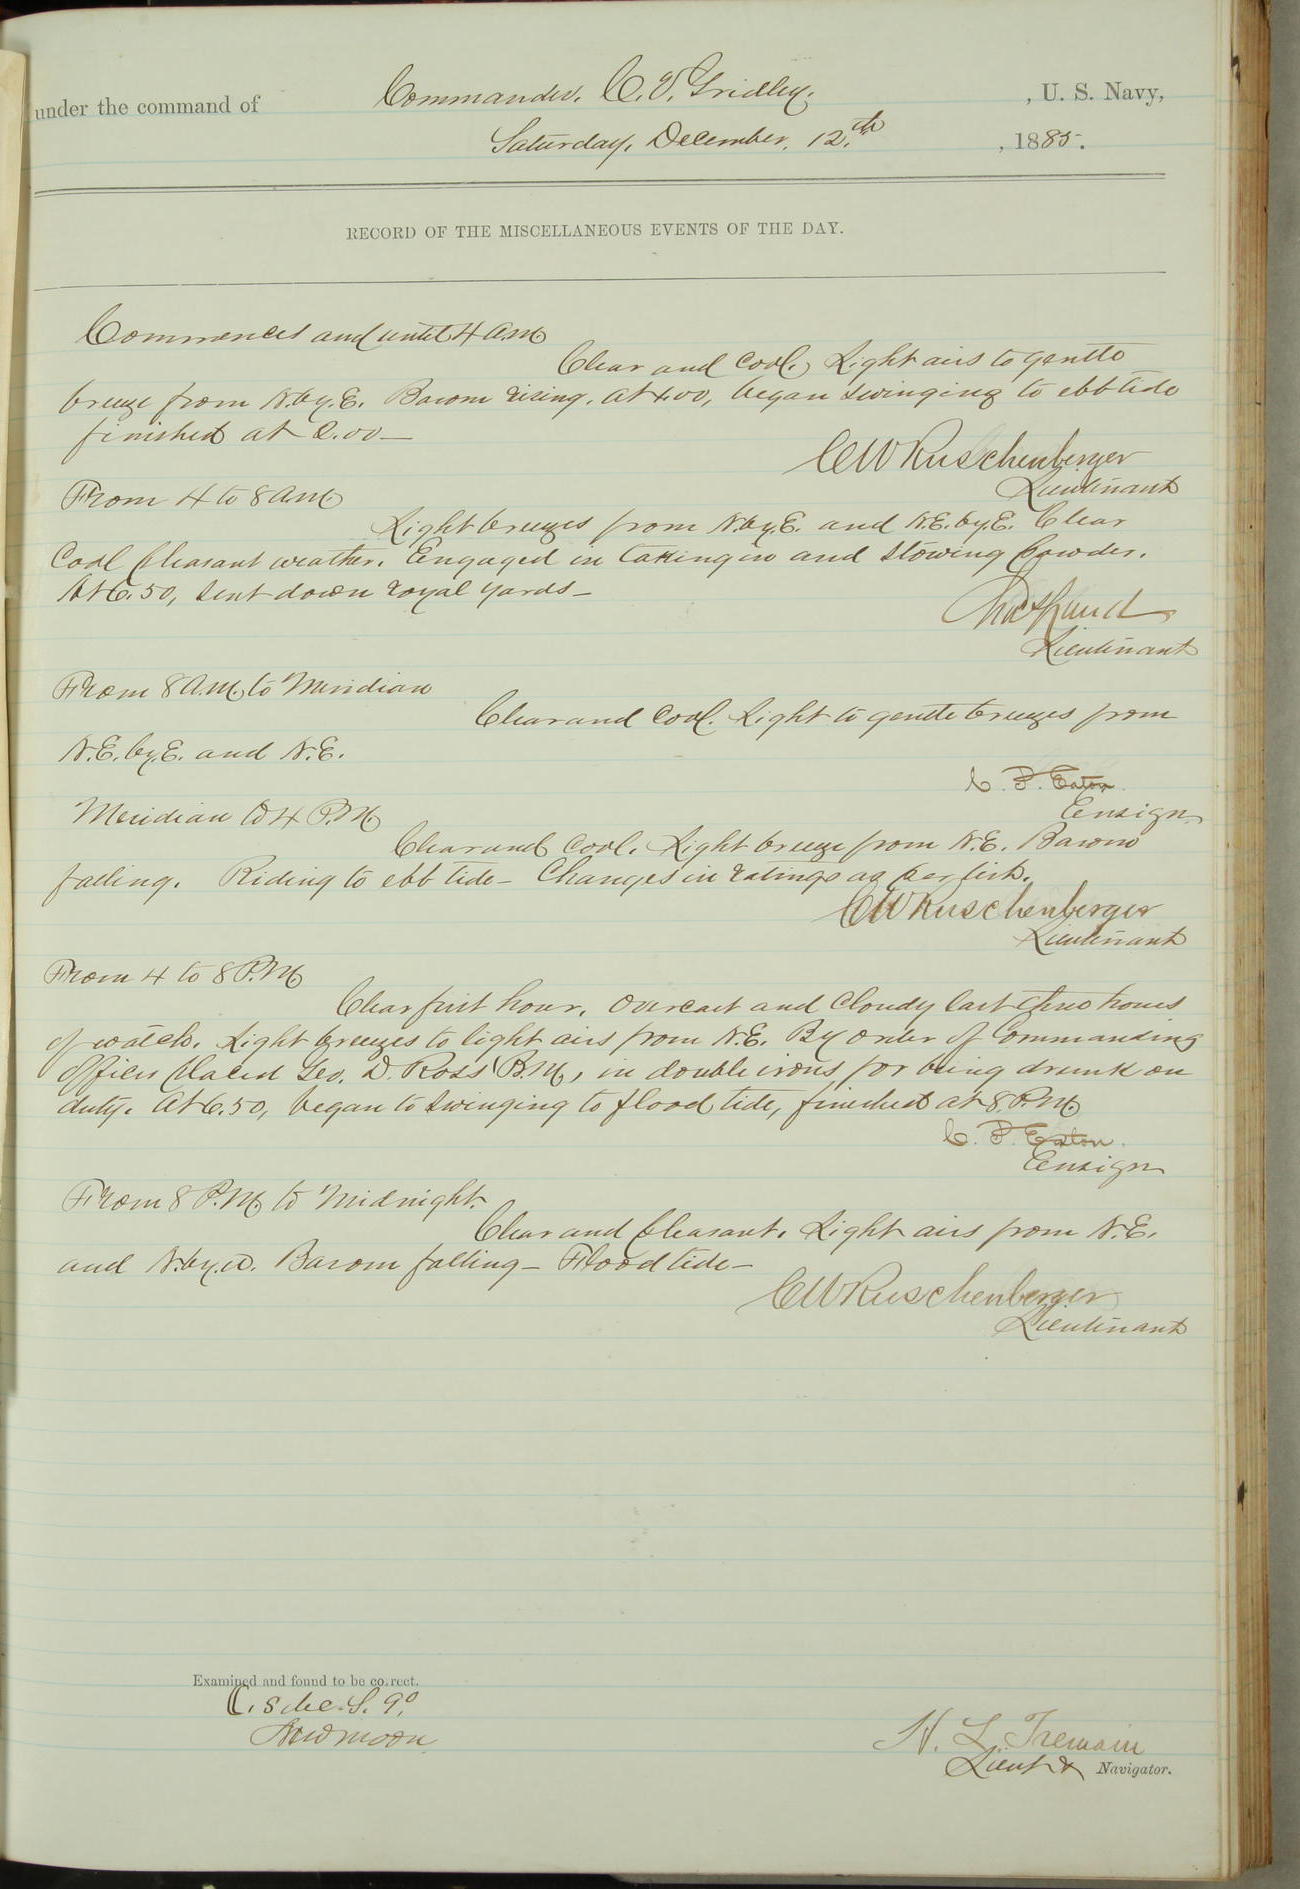 under the command of Commander. C. V. Gridley. , U. S. Navy,
Saturday, December, 12.th , 1885.
RECORD OF THE MISCELLANEOUS EVENTS OF THE DAY.
Commences and until 4 A.M.
Clear and Cool. Light airs to gentle
breeze from N.by.E. Barom rising. At 4.00, began swinging to ebb tide
finished at 2.00—
C W Ruschenberger
Lieutenant
From 4 to 8 A.M.
Light breezes from N.by.E. and N.E.by.E. Clear
Cool pleasant weather. Engaged in taking in and stowing powder.
At 6.50, sent down royal yards—
Lieutenant
From 8 A.M. to Meridian
Clear and cool. Light to gentle breezes from
N.E.by.E. and N.E.
C. P. Eaton.
Ensign
Meridian to 4 P.M.
Clear and cool. Light breeze from N.E. Barom
falling. Riding to ebb tide— Changes in ratings as per list.
C W Ruschenberger
Lieutenant
From 4 to 8 P.M.
Clear first hour, overcast and cloudy last three hours
of watch. Light breezes to light airs from N.E. By order of Commanding
Officer placed Geo. D. Ross B.M., in double irons for being drunk on
duty. At 6.50, began to swinging to flood tide, finished at 8. P.M.
C. P. Eaton.
Ensign
From 8 P.M. to Midnight.
Clear and pleasant. Light airs from N.E.
and N.by.W. Barom falling— Flood tide—
C W Ruschenberger
Lieutenant
Examined and found to be correct.
New moon
H. L. Tremain
Lieut & Navigator.